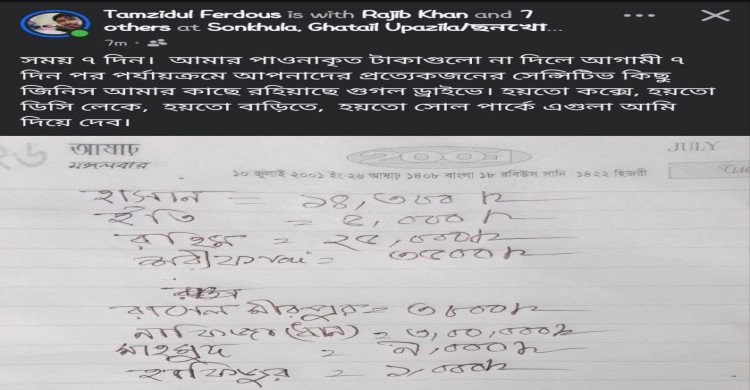 Tamzidul Ferdous is with Rajib Khan and 7
others at Sonkhula, Ghatail Upazila/ছনখো...
7m
সময় ৭ দিন। আমার পাওনাকৃত টাকাগুলো না দিলে আগামী ৭
দিন পর পর্যায়ক্রমে আপনাদের প্রত্যেকজনের সেন্সিটিভ কিছু
জিনিস আমার কাছে রহিয়াছে গুগল ড্রাইভে। হয়তো কক্সে, হয়তো
ডিসি লেকে, হয়তো বাড়িতে, হয়তো সোল পার্কে এগুলা আমি
দিয়ে দেব।
২৬ আষাঢ় JULY
মঙ্গলবার ২০০১
১০ জুলাই ২০০১ ইং ২৬ আষাঢ় ১৪০৮ বাংলা ১৮ রবিউস সানি ১৪২২ হিজরী Tue
হাসান =
ইতি = ৫,০০০
রহিম = ২৫,০০০
= ৩৫০০
রাসেল মীরপুর =
(ধান) = ৩,০০,০০০
মাহমুদ = ৭,০০০
হাফিজুর = ১,০০০